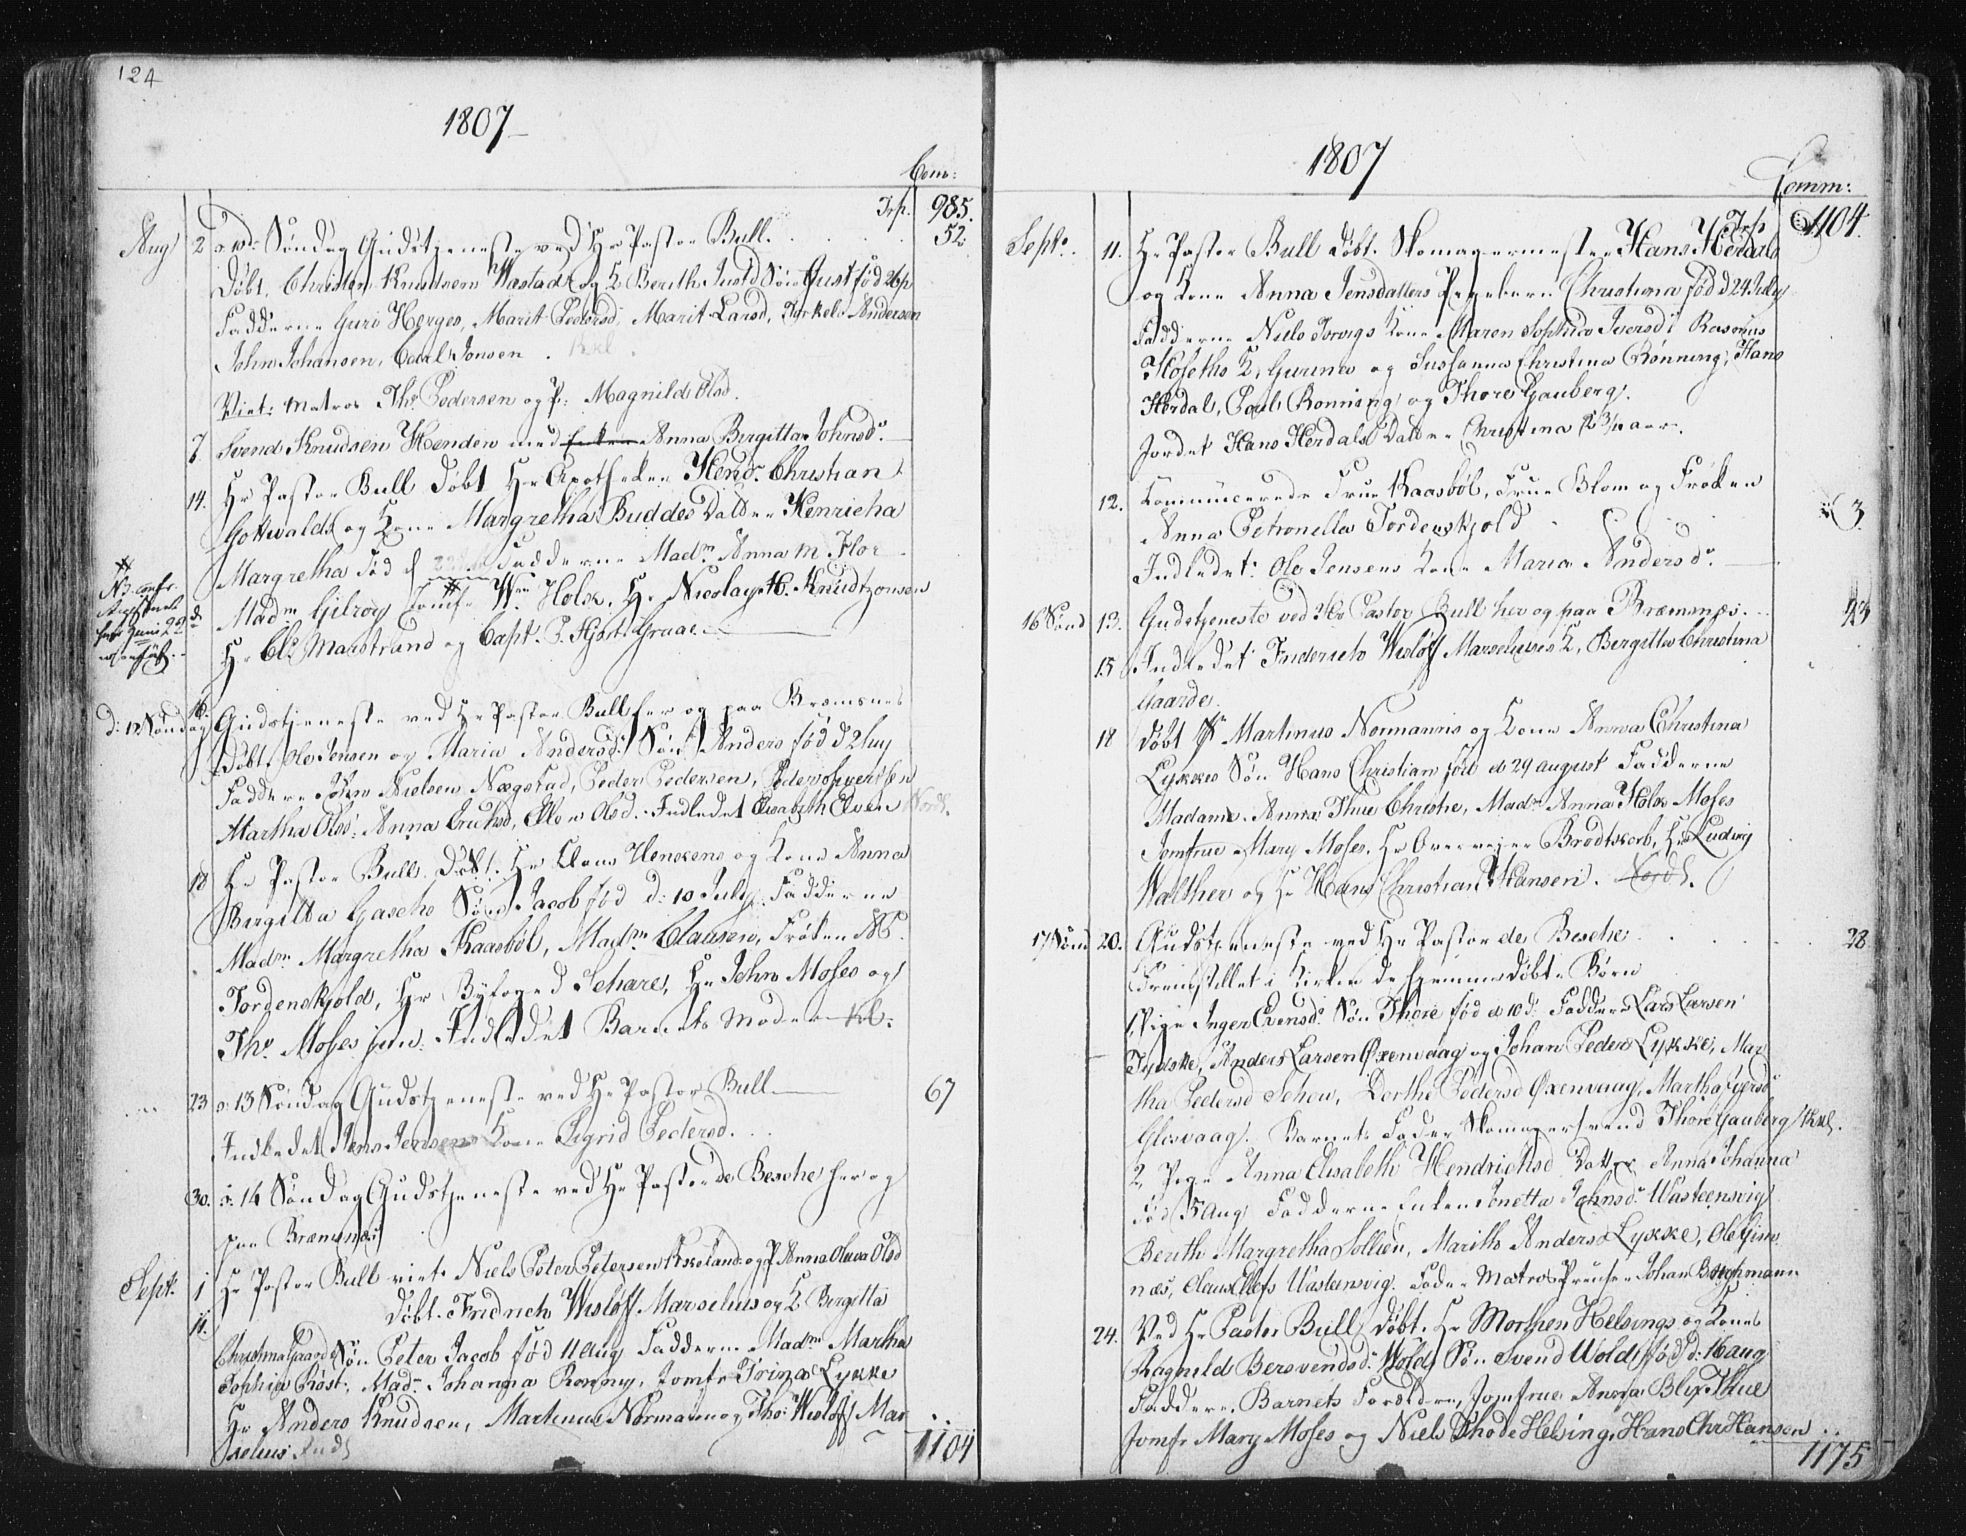 124
1807
Com:
Trsp. 985.
Aug 2 10de Søndag Gudstjeneste ved Hr Pastor Bull. 52.
Døbt. Christen Knudsen Wastad og K Berith Justd Søn Just fød 26 
Fadderne Guri Herges, Marit Pedersd, Marit Larsd, Torkel Andersen
John Johansen, Carl Jonsen.
Viet: Matros Thr. Pedersen og P: Magnild Olsd.
7. Svend Knudsen Henden med Anna Birgitta Johnsd.
14. Hr Pastor Bull Døbt Hr Apotheker Hend. Christian
Gottwaldt og Kone Margretha Buddes Datter Henricha
Margretha fød d Fadderne Madm Anna M. Flor
Madm Gilroy Jomfr W. Holst, Hr Nicolay H. Knudtzonsen
NB
Juni
Hr Cl. Marstrand og Capt. P. Hjort Graae.
d: 12 Søndag 16. Gudstjeneste ved Hr Pastor Bull her og paa Bremsnes
Døbt. Ole Jensen og Maria Andersd. Søn Anders fød d 2 July
Faddere John Nielsen Nægstad, Peder Pedersen, Peder Syversen
Martha Olsd: Anna Ericksd, Ellen Olsd. Indledet Elisabeth Elven
18 Hr Pastor Bull. Døbt. Hr Claus Henckens og Kone Anna
Birgitta Gaschs Søn Jacob fød d: 10 July. Fadderne
Madm Margretha Kaasbøl, Madm Clausen, Frøken AB.
Tordenskjold, Hr Byfoged Schare, Hr John Moses og
Thr. Moses jun. Indledet Barnets Moder
23 13 Søndag Gudstjeneste ved Hr Pastor Bull 67
Indledet Jens Jensens Kone Sigrid Pedersd.
30. 14 Søndag Gudstjeneste ved Hr Pastor de Besche her og
paa Bremsnes
Sept. 1 Hr Pastor Bull viet Niels Peter Petersen og P Anna Olava Olsd
11. Døbt. Fridrich Wisløff Marselius og K Birgitta
Christina Gaarde Søn Peter Jacob fød 11 Aug Fadderne Madm Martha
Sophia Røst, Madm Johanna Ronny, Jomfr Trina Lykke
Hr Anders Knudsen, Martinus Normann og Tho: Wisløff Mar-
selius.
1104
1807
Comm:
Trsp 1104.
Septr. 11. Hr Pastor Bull Døbt. Skomagermester Hans Herdals
og Kone Anna Jensdatters Pigebarn Christina fød d 24 July
Fadderne Niels Kone Maren Sophia Iversd Rasmus
Hoseths K, Gurina og Sussanna Christina Rønning, Hans
Herdal, Poul Ronning og Thore Gauberg.
Jordet Hans Herdals Datter Christina aar.
12. Communicerede Frue Kaasbøl, Frue Blom og Frøken
Anna Petronella Tordenskjold 3.
Indledet: Ole Jensens Kone Maria Andersd.
16 Sønd 13. Gudstjeneste ved Hr Pastor Bull her og paa Bremsnes.
15 Indledet Friderich Wisløff Marselius's K, Birgitta Christina
Gaarde.
18 Døbt Hr Martinus Normanns og Kone Anna Christina
Lykkes Søn Hans Christian fød d 29 august Fadderne
Madame Anna Thue Christie, Madm Anna Holst Moses
Jomfrue Mary Moses. Hr Overvejer Brodtkorb, Hr Ludvig
Walther og Hr Hans Christian Hansen.
17 Sønd 20. Gudstjeneste ved Hr Pastor de Besche 28
Fremstillet i Kirken de hjemmedøbte Børn
1, Pige Inger Evensd. Søn Thore fød d 10de. Faddere Lars Larsen
Tydske, Anders Larsen Øxenvaag og Johan Peder Lykke, Mar-
tha Pedersd Schou, Dorthe Pedersd Øxenvaag, Martha
Glosvaag. Barnets Fader Skomagersvend Thore Gauberg
2 Pige Anna Elisabeth Hendrichsd Datter Anna Johanna
fød 15 Aug Fadderne Enken Jonetta Johnsd. Wasteensvig
Berith Margretha Sollien, Marith Andersd Lykke, Ole Gim-
næs, Claus Ellefs Wasteensvig. Fader Matros Johan Borchmann
24. Ved Hr Pastor Bull Døbt. Hr Morthen Helsings og Kones
Ragnild Bersvendsd. Wolds Søn Svend Wold fød d: 16 aug
Faddere, Barnets Forældre, Jomfrue Anna Blix Thue
Jomfr Mary Moses og Niels Thode Helsing, Hans Chr Hansen
1175